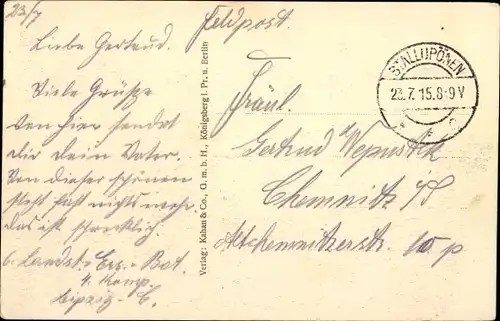 23/7
Liebe Gertrud.
Viele Grüße
von hier sendet
dir dein Vater.
Von dieser schönen
steht fast nichts mehr
das ist schrecklich.
6. Landst. Ers. Bat.
4. Komp.
Leipzig
Verlag: Kahan & Co., G. m. b. H., Königsberg i. Pr. u. Berlin
Feldpost.
STALLUPÖNEN
23.7.15.8-9V
Fräul.
Gertrud
Chemnitz i/S
Altchemnitzerstr. 10 p